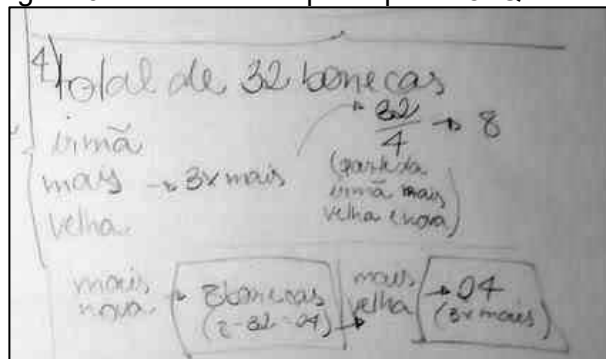 4) total de 32 bonecas
irmã
mais → 3x mais
velha
32/4 → 8
(parte da
irmã mais
velha e nova)
mais
nova → 8 bonecas
(8 - 32 = 24)
mais
velha → 24
(3x mais)